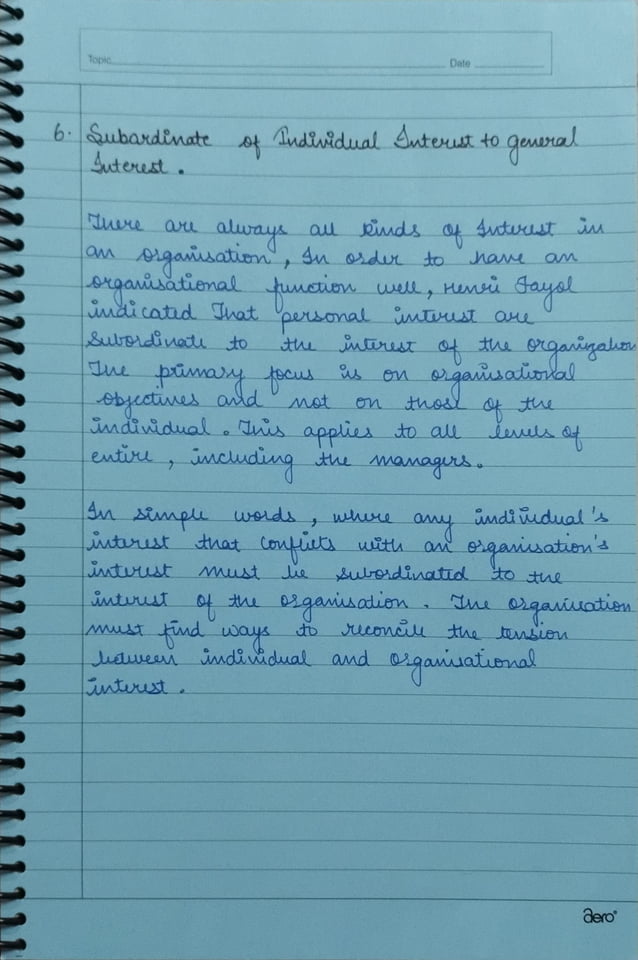 Topic Date
6. Subardinate of Individual Interest to general
Interest.
There are always all kinds of Interest in
an organisation, In order to have an
organisational function well, Henri Fayol
indicated That personal interest are
Subordinate to the interest of the organization
The primary focus is on organisational
objectives and not on those of the
individual. This applies to all levels of
entire, including the managers.
In simple words, where any individual's
interest that conflicts with an organisation's
interest must be subordinated to the
interest of the organisation. The organisation
must find ways to reconcile the tension
between individual and organisational
interest.
aero